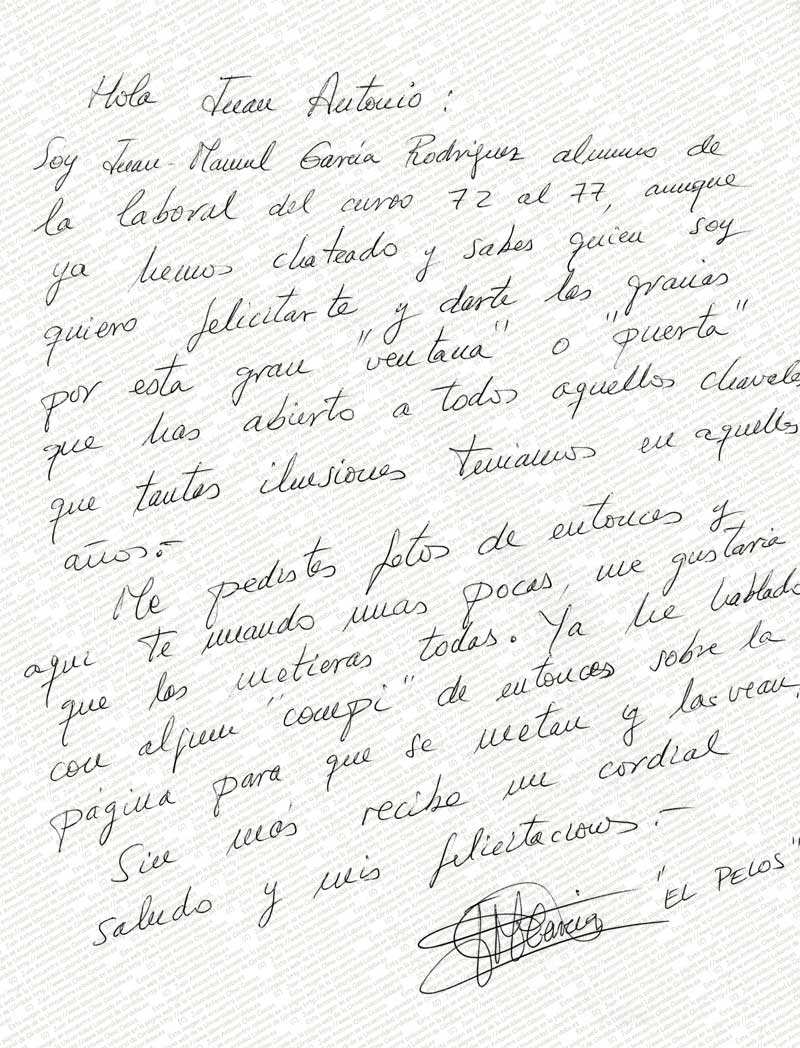 Hola Juan Antonio :
Soy Juan-Manuel García Rodríguez alumno de
la laboral del curso 72 al 77, aunque
ya hemos chateado y sabes quien soy
quiero felicitarte y darte las gracias
por esta gran "ventana" o "puerta"
que has abierto a todos aquellos chavales
que tantas ilusiones teniamos en aquellos
años.-
Me pedistes fotos de entonces y
aqui te mando unas pocas, me gustaria
que las metieras todas. Ya he hablado
con algun "compi" de entonces sobre la
página para que se metan y las vean.
Sin más recibe un cordial
saludo y mis felicitaciones.-
"EL PELOS"
JMGarcia